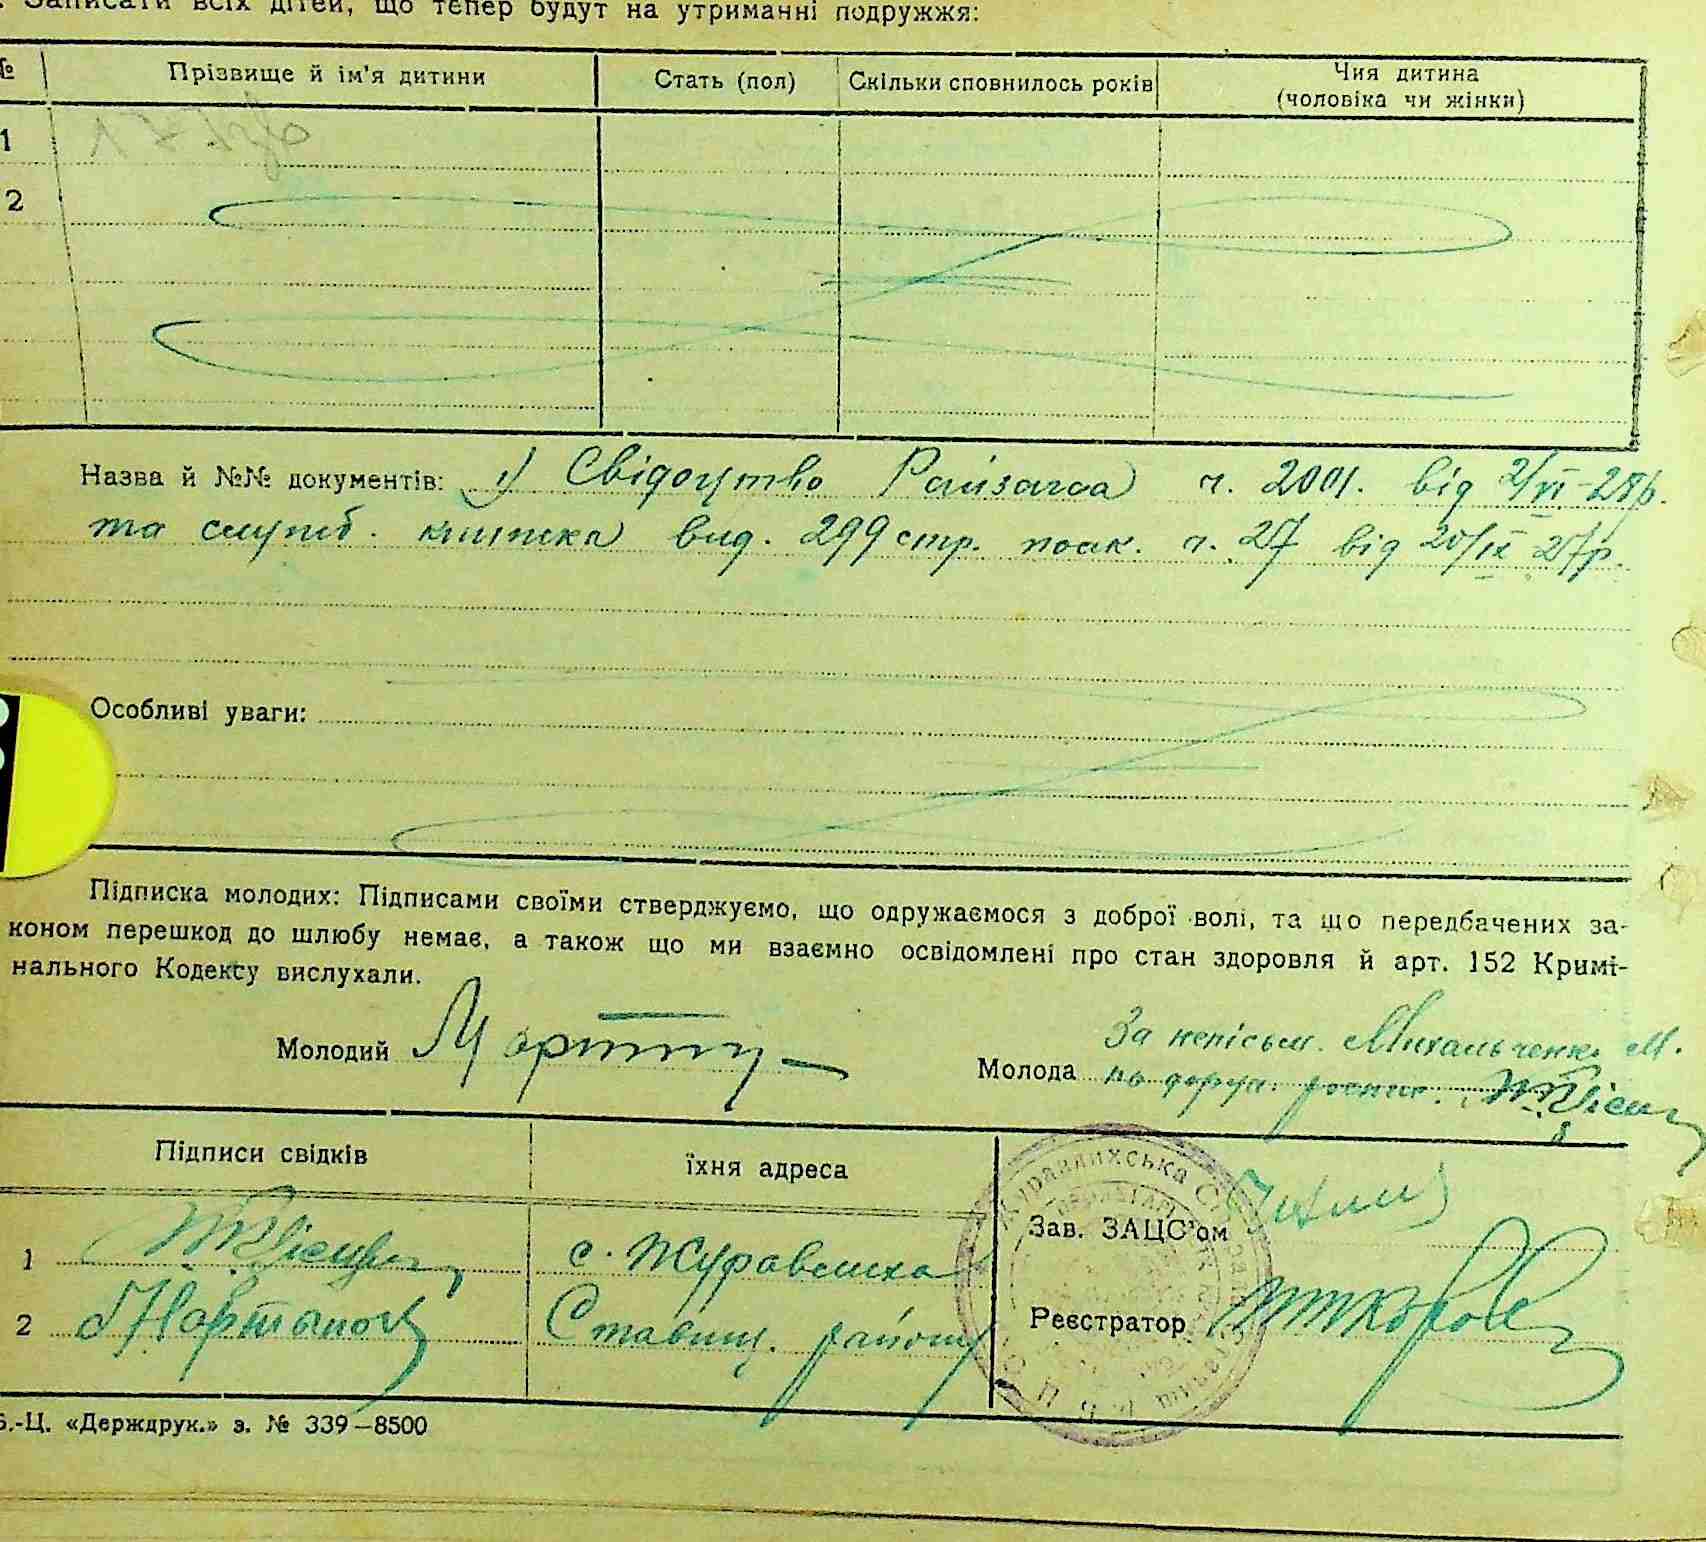 Записати всіх дітей, що тепер будут на утриманні подружжя:
№ Прізвище й ім'я дитини Стать (пол) Скільки сповнилось років Чия дитина
(чоловіка чи жінки)
1
2
Назва й №№ документів: 1) Свідоцтво Райзагса ч. 2001. від 2/VI-28р.
та служб. книжка вид. 299 стр. полк. ч. 27 від 20/IX 27р.
Особливі уваги:
Підписка молодих: Підписами своїми стверджуємо, що одружаємося з доброї волі, та що передбачених за-
коном перешкод до шлюбу немає, а також що ми взаємно освідомлені про стан здоровля й арт. 152 Кримі-
нального Кодексу вислухали.
За непісьм. Михальченко М.
Молодий Молода по доруч. роспис.
Підписи свідків їхня адреса
Зав. ЗАЦС'ом
1 с. Журавлиха
Реєстратор
2 Ставищ. району
Б.-Ц. «Держдрук.» з. № 339—8500